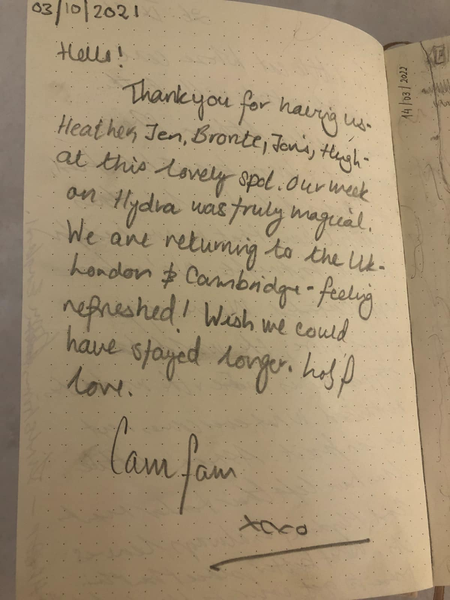 03/10/2021
Hello!
Thankyou for having us-
Heather, Jen, Bronte, Joris, Hugh-
at this lovely spot. Our week
on Hydra was truly magical.
We are returning to the UK-
London & Cambridge - feeling
refreshed! Wish we could
have stayed longer. lots of
love.
Cam fam
xoxo
14/03/2022